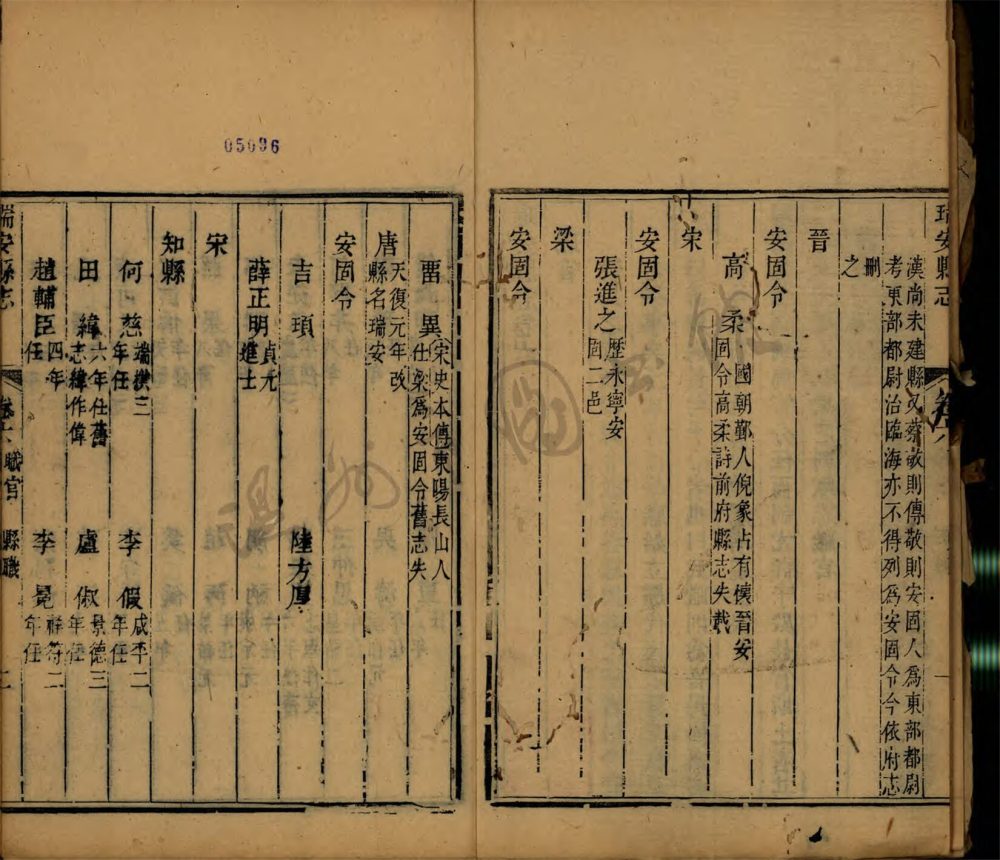 瑞安縣志
卷六
漢尚未建縣又蔡敬則傳敬則安固人爲東部都尉
考東部都尉治臨海亦不得列爲安固令今依府志
刪
之
晉
安固令
高柔國朝鄞人倪象占有懷晉安
固令高柔詩前府縣志失載
宋
安固令
張進之歷永寧安
固二邑
梁
安固令
05096
畱異宋史本傳東陽長山人
仕梁爲安固令舊志失
唐天復元年改
縣名瑞安
安固令
吉頊 陸方厚
薛正明貞元
進士
宋
知縣
何慈端拱三
年任 李假咸平二
年任
田緯六年任舊
志緯作偉 盧俶景德三
年任
趙輔臣四年
任 李冕祥符二
年任
瑞安縣志 卷六 職官 縣職 二